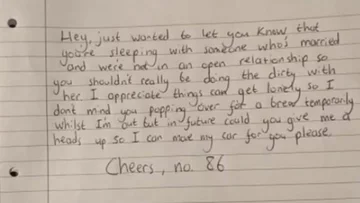 Hey, just wanted to let you know that
you're sleeping with someone who's married
and we're not in an open relationship so
you shouldn't really be doing the dirty with
her I appreciate things can get lonely so I
dont mind you popping over for a brew temporarily
whilst I'm out but in future could you give me a
heads up so I can move my car for you please.
Cheers, no. 86